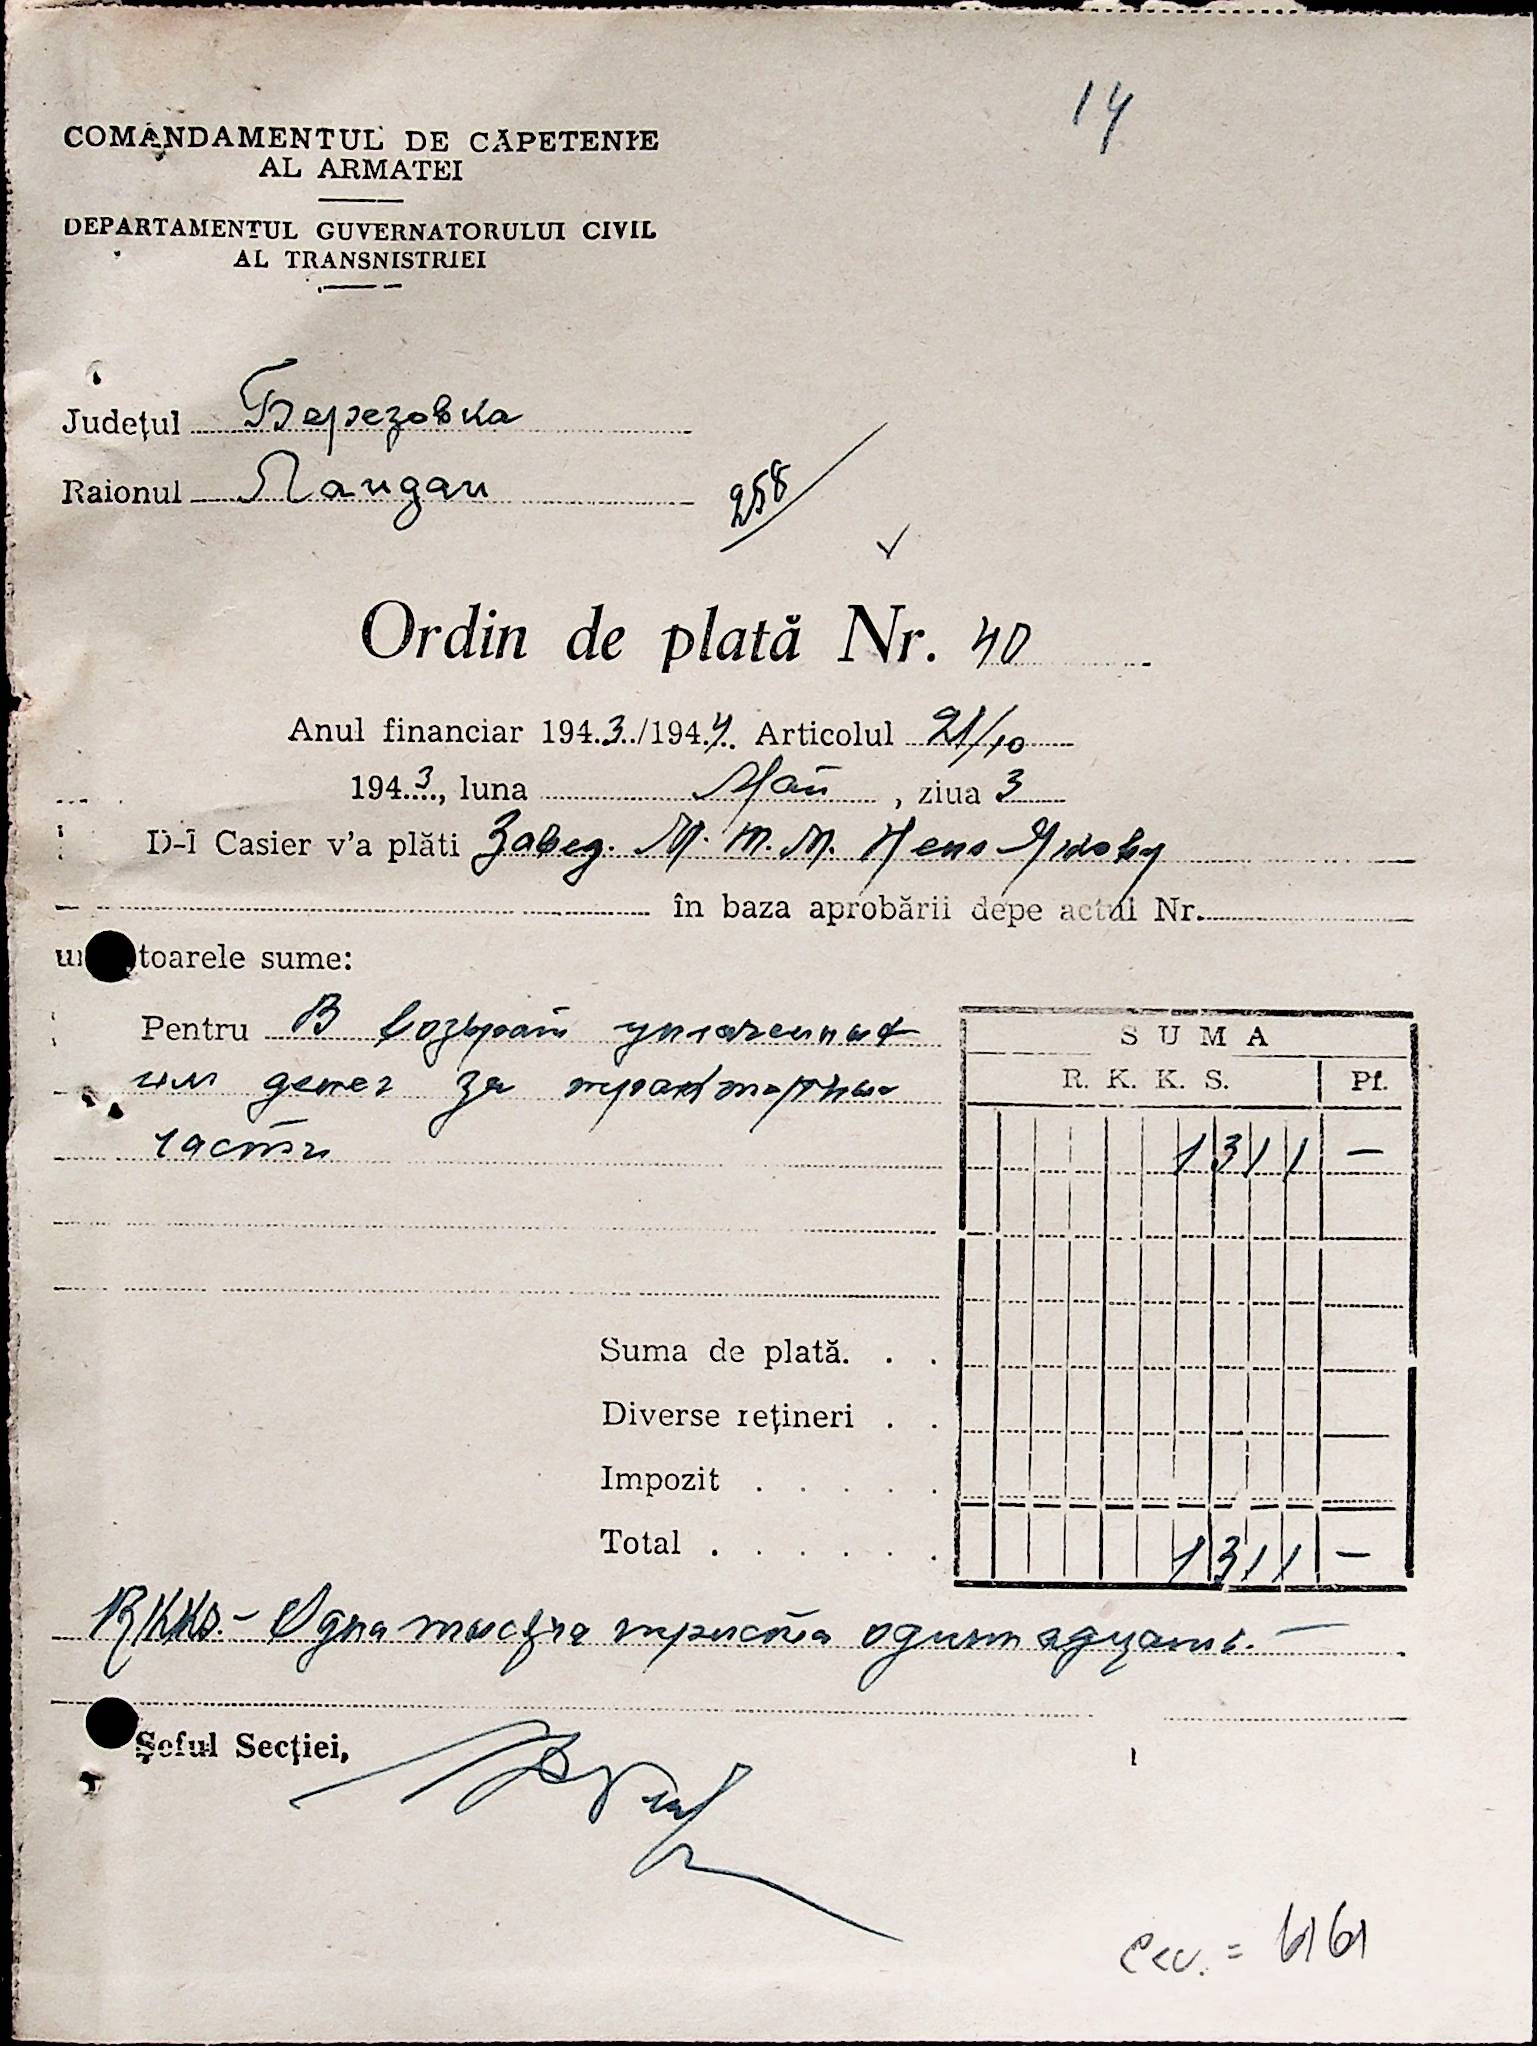 14
COMANDAMENTUL DE CĂPETENIE
AL ARMATEI
DEPARTAMENTUL GUVERNATORULUI CIVIL
AL TRANSNISTRIEI
Județul Березовка
Raionul Ландау
258
Ordin de plată Nr. 40
Anul financiar 1943/1944 Articolul 21/10
1943, luna Май, ziua 3
D-l Casier v'a plăti Завед. М.Т.М.
în baza aprobării depe actul Nr.
toarele sume:
Pentru В возврат уплаченных
им денег за тракторные
части
SUMA
R. K. K. S. Pf.
1311 —
Suma de plată
Diverse rețineri
Impozit
Total 1311 —
RKKS. - Одна тысяча триста одиннадцать. —
Șeful Secției,
6161